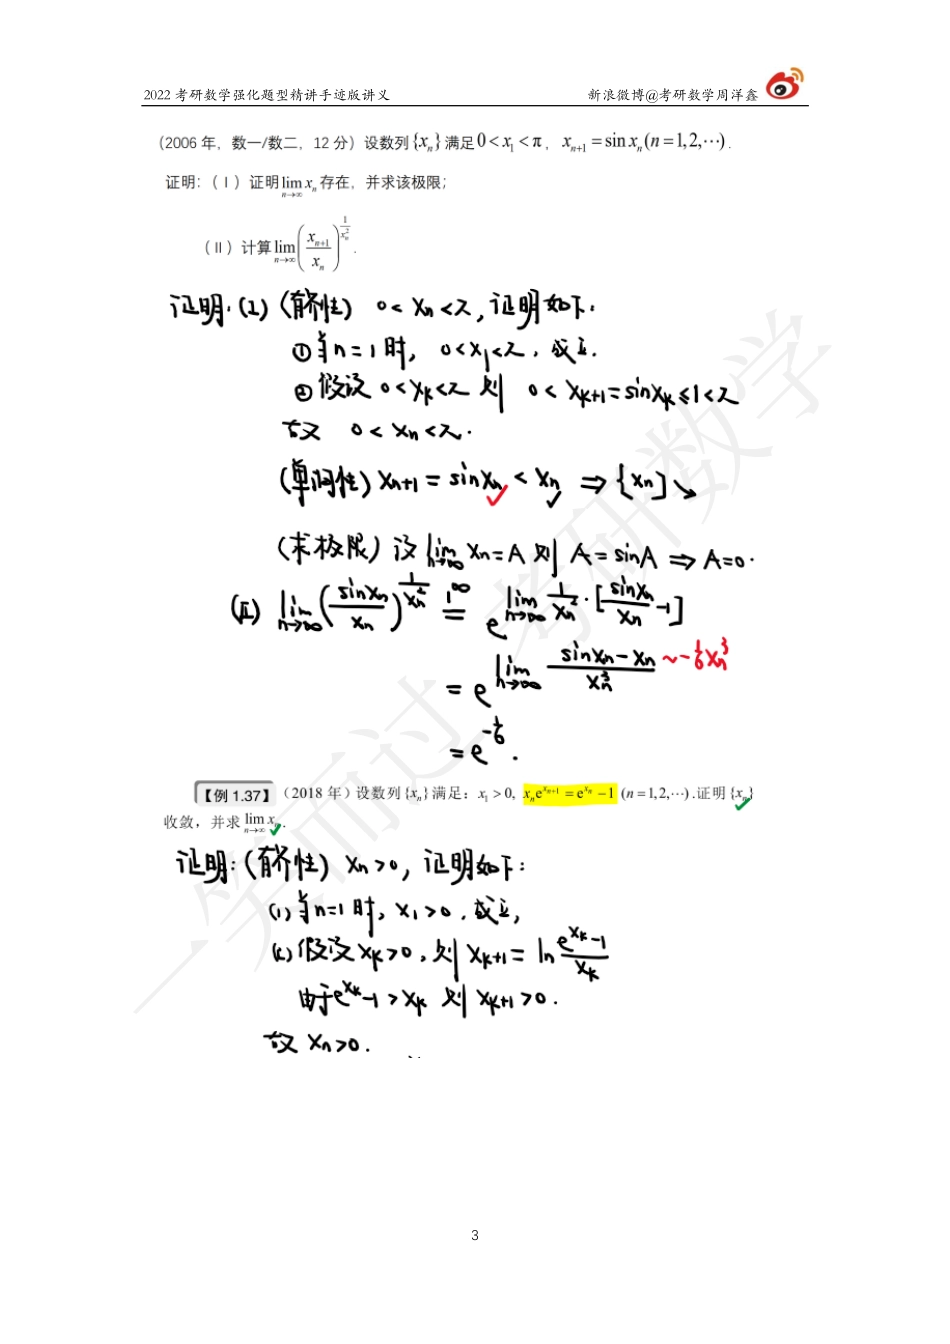 2022 考研数学强化题型精讲手迹版讲义 新浪微博@考研数学周洋鑫
(2006 年，数一/数二，12 分) 设数列{xₙ}满足0 < x₁ < π，xₙ₊₁ = sin xₙ (n = 1, 2, ⋯) .
证明：(Ⅰ) 证明 lim_{n→∞} xₙ 存在，并求该极限；
(Ⅱ) 计算 lim_{n→∞} (xₙ₊₁/xₙ)^{1/xₙ²} .
证明：(I) (有界性) 0 < xₙ < π，证明如下：
① 当n = 1 时，0 < x₁ < π，成立.
② 假设 0 < xₖ < π 则 0 < xₖ₊₁ = sinxₖ ≤ 1 < π
故 0 < xₙ < π.
(单调性) xₙ₊₁ = sinxₙ < xₙ ⇒ {xₙ}↘
(求极限) 设 lim_{n→∞} xₙ = A 则 A = sinA ⇒ A = 0.
(Ⅱ) lim_{n→∞} (sinxₙ/xₙ)^{1/xₙ²} \overset{1^∞}{=} e^{lim_{n→∞} 1/xₙ² · [sinxₙ/xₙ - 1]}
= e^{lim_{n→∞} (sinxₙ - xₙ)/xₙ³} ~ -1/6 xₙ³
= e^{-1/6} .
【例 1.37】(2018 年) 设数列{xₙ}满足：x₁ > 0, xₙe^{xₙ₊₁} = e^{xₙ} − 1 (n = 1, 2, ⋯) .证明{xₙ}
收敛，并求 lim_{n→∞} xₙ .
证明：(有界性) xₙ > 0，证明如下：
(1) 当n=1 时，x₁ > 0，成立，
(2) 假设 xₖ > 0，则 xₖ₊₁ = ln (e^{xₖ} - 1)/xₖ
由于e^{xₖ} - 1 > xₖ 则 xₖ₊₁ > 0 .
故 xₙ > 0 .
3
一笑而过 考研数学